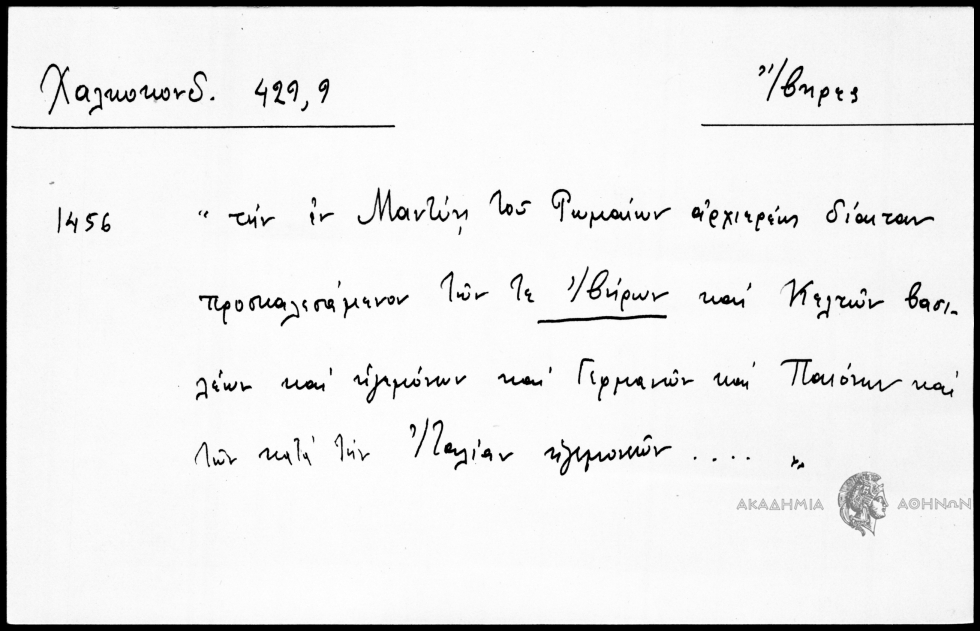 Χαλκοκονδ. 429,9
Ἴβηρες
1456 “ τὴν ἐν Μαντύῃ τοῦ Ῥωμαίων ἀρχιερέως δίαιταν
προσκαλεσάμενον τῶν τε Ἰβήρων καὶ Κελτῶν βασι-
λέων καὶ ἡγεμόνων καὶ Γερμανῶν καὶ Παιόνων καὶ
τῶν κατὰ τὴν Ἰταλίαν ἡγεμονιῶν .... ”
ΑΚΑΔΗΜΙΑ ΑΘΗΝΩΝ